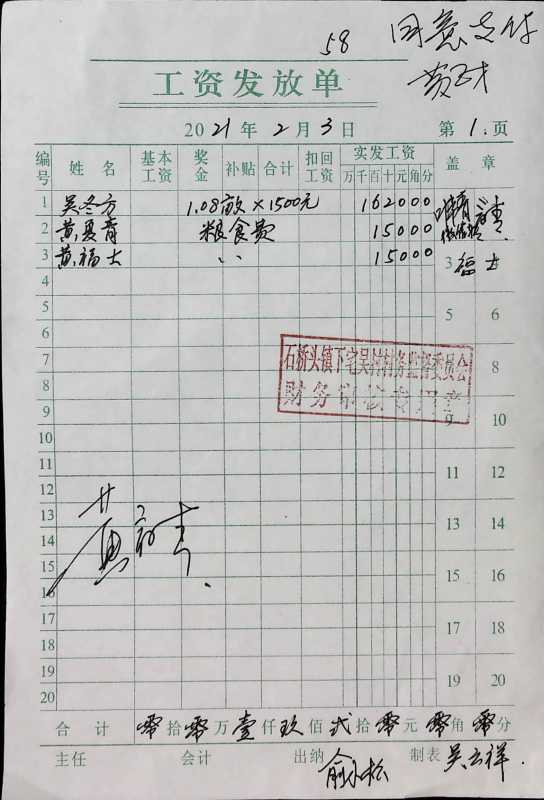 58
同意支付
工资发放单
2021年2月3日 第1页
编号 姓名 基本工资 奖金 补贴 合计 扣回工资 实发工资 盖章
万千百十元角分
1 吴冬方 1.08亩×1500元 162000
2 黄夏青 粮食员 15000
3 黄福士 〃 15000 3 福士
4
5 5 6
6
7 8
8
9 9 10
10
11 11 12
12
13 13 14
14
15 15 16
16
17 17 18
18
19 19 20
20
石桥头镇下宅吴村村务监督委员会
财务审核专用章
合计 零拾零万壹仟玖佰弍拾零元零角零分
主任 会计 出纳 俞小松 制表 吴云祥